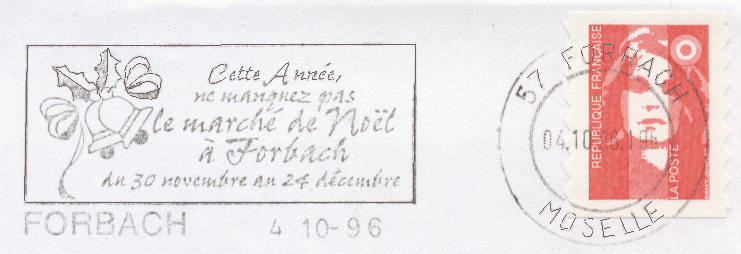 Cette Année,
ne manquez pas
le marché de Noël
à Forbach
du 30 novembre au 24 décembre
FORBACH 4 10-96
57 FORBACH
MOSELLE
RÉPUBLIQUE FRANÇAISE
LA POSTE